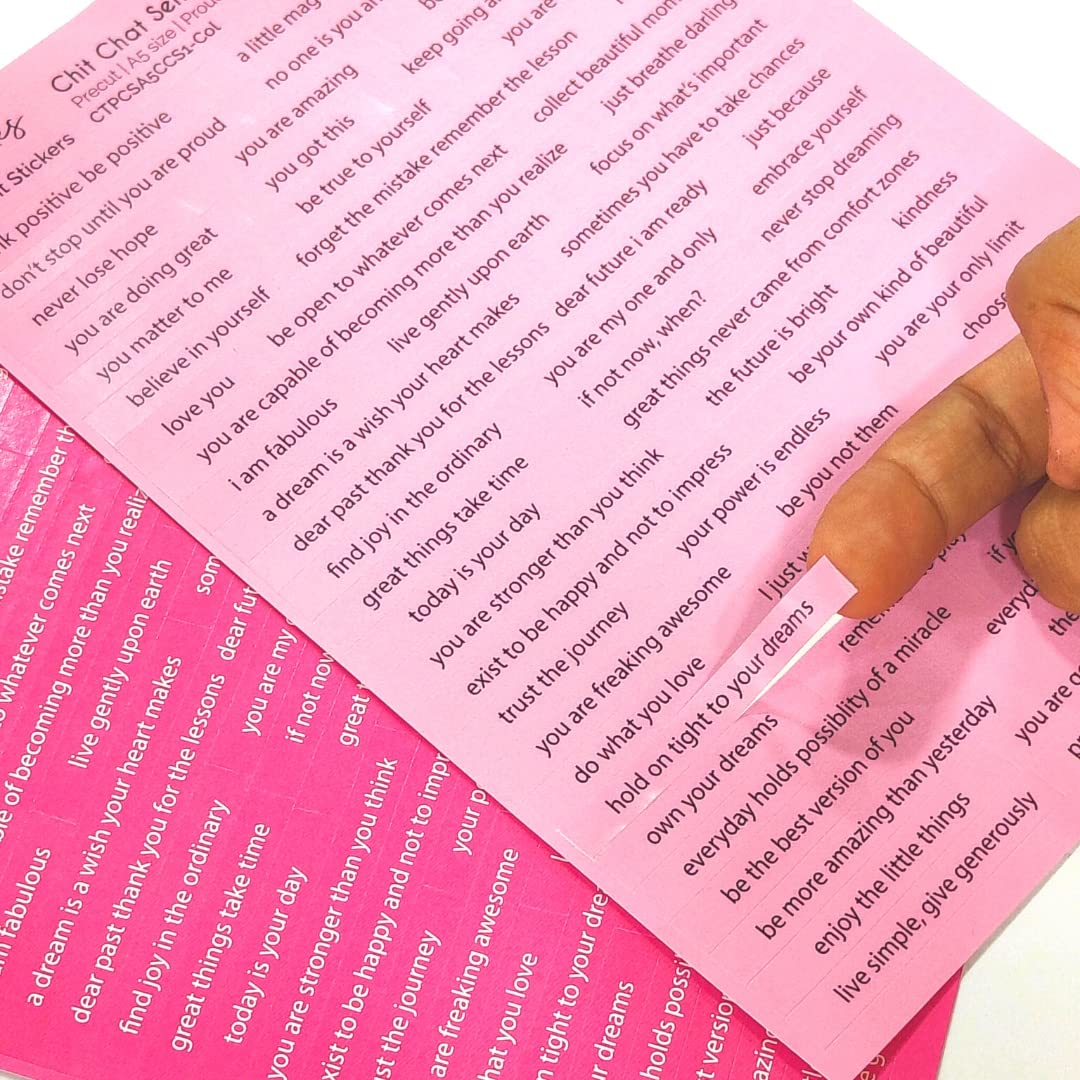 Chit Chat
Precut | A5 size |
CTPCSA5CCS1-Col
Stickers
positive be positive
don't stop until you are proud
never lose hope
you are doing great
you matter to me
believe in yourself
love you
you are capable of becoming more than you realize
i am fabulous
a dream is a wish your heart makes
dear past thank you for the lessons
find joy in the ordinary
great things take time
today is your day
you are stronger than you think
exist to be happy and not to impress
trust the journey
you are freaking awesome
do what you love
hold on tight to your dreams
own your dreams
everyday holds possiblity of a miracle
be the best version of you
be more amazing than yesterday
enjoy the little things
live simple, give generously
a little
no one is you
you are amazing
you got this
be true to yourself
forget the mistake remember the lesson
be open to whatever comes next
live gently upon earth
keep going
you are
collect beautiful
just breathe darling
focus on what's important
sometimes you have to take chances
dear future i am ready
you are my one and only
if not now, when?
great things never came from comfort zones
the future is bright
be your own kind of beautiful
you are your only limit
choose
just because
embrace yourself
never stop dreaming
kindness
your power is endless
be you not them
I just
if
you are
remember
whatever comes next
of becoming more than you
live gently upon earth
fabulous
a dream is a wish your heart makes
dear past thank you for the lessons
find joy in the ordinary
great things take time
today is your day
you are stronger than you think
exist to be happy and not to
the journey
are freaking awesome
what you love
tight to your
dreams
holds
dear
you are my
if not now
great
your